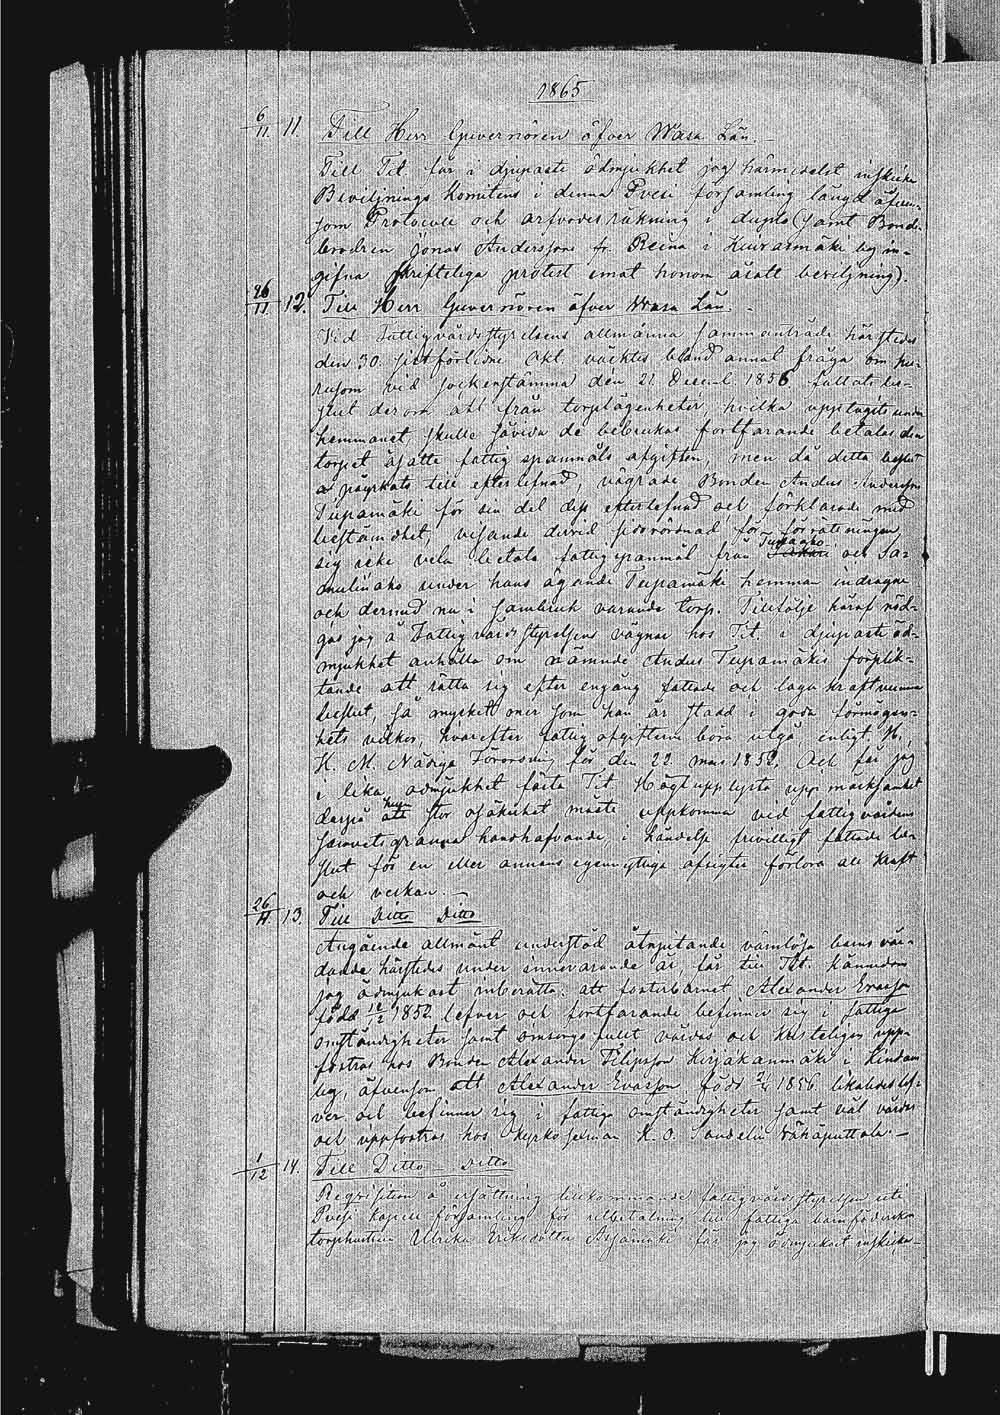 1865
6/11. 11. Till Herr Guvernören öfver Wasa Län. —
Till Tit. får i djupaste ödmjukhet jag härmedelst inskicka
Beviljnings Komiténs i denna Pvesi församling längd äfven-
som Protocoll och arfvodes räkning i duplo (samt Bonde-
brodren Jonas Anderssons fr. Reina i Kuivasmäki by in-
gifna skrifteliga protest emot honom åsatt beviljning).
26/11. 12. Till Herr Guvernören öfver Wasa Län. —
Vid Fattigvårdsstyrelsens allmänna sammanträde härstedes
den 30. sistförlidne Okt. väcktes bland annat fråga om hu-
rusom vid sockenstämma den 21 Decemb. 1856 fattats bes-
lut derom att från torplägenheter, hvilka upptagits under
hemmanet, skulle såvida de bebrukas fortfarande betalas den
torpet åsatte fattig spanmåls afgiften, men då detta beslut
påyrkats till efterlefnad, vägrade Bonden Andus Andersson
Tupamäki för sin del dess efterlefnad och förklarade med
bestämdhet, visande dervid sidovördnad för församlingen,
sig icke vela betala fattigspanmål från Tupaaho och Sa-
mulinaho under hans ägande Tupamäki hemman indragne
och dermed nu i sambruk varande torp. Tillfölje häraf nöd-
gas jag å Fattigvårdsstyrelsens vägnar hos Tit. i djupaste öd-
mjukhet anhålla om nämnde Andus Tupamäkis förplik-
tande att rätta sig efter engång fattade och laga kraftvunna
beslut, så mycket mer som han är stadd i goda förmögen-
hets vilkor, hvarefter fattig afgifterna böra utgå, enligt H.
K. M. Nådiga Förordning för den 22 mars 1852. Och får jag
i lika ödmjukhet fästa Tit. Högtupplysta uppmärksamhet
derpå att huru stor osäkerhet måste uppkomma vid fattigvårdens
samvetsgranna handhafvande, i händelse frivilligt fattade be-
slut för en eller annans egennyttiga afsigter förlora all kraft
och verkan. —
26/11. 13. Till Ditto Ditto
Angående allmänt understöd åtnjutande vanlösa barns vår-
dande härstedes under innevarande år, får till Tit. kännedom
jag ödmjukast inberätta: att fosterbarnet Alexander Evasson
född 12/2 1852 lefver och fortfarande befinner sig i fattiga
omständigheter samt omsorgsfullt vårdas och kristeligen upp-
fostras hos Bonden Alexander Filipsson Kirjakanmäki i Kindam
by, äfvensom att Alexander Evasson född 1856 likaledes lef-
ver och befinner sig i fattiga omständigheter samt väl vårdas
och uppfostras hos kyrko sexman K. O. Sandelin Vähäputtola. —
1/12 14. Till Ditto — Ditto
Reqvisition å ersättning tillkommande fattigvårdsstyrelsen uti
Pvesi kapell församling för utbetalning till fattiga barnföderska
torphustrun Ulrika Eriksdotter får jag ödmjukast inskicka —